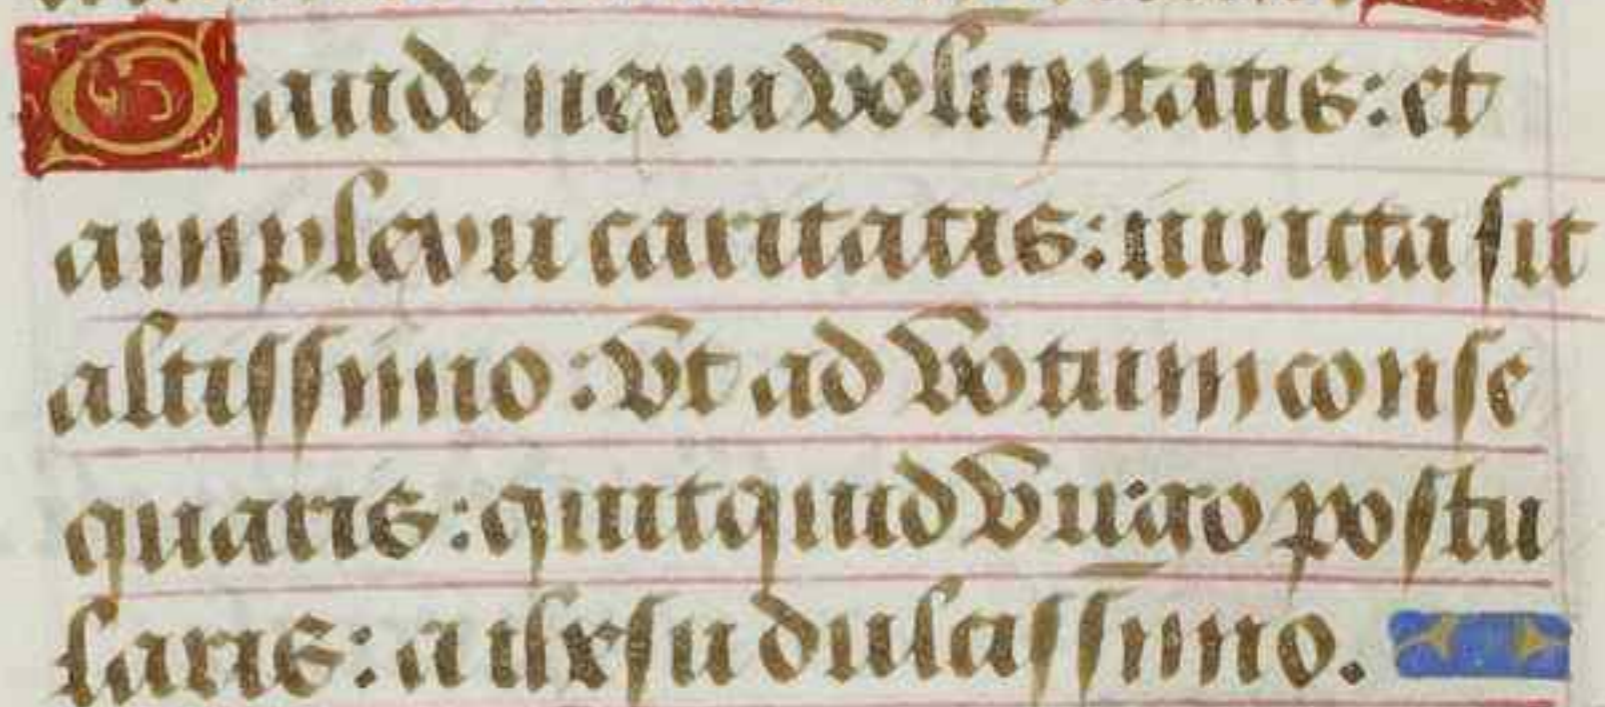 Gaude nexu voluptatis: et
amplexu caritatis: iuncta sit
altissimo: vt ad votum conse
quaris: quitquid virgo postu
laris: a ihesu dulcissimo.